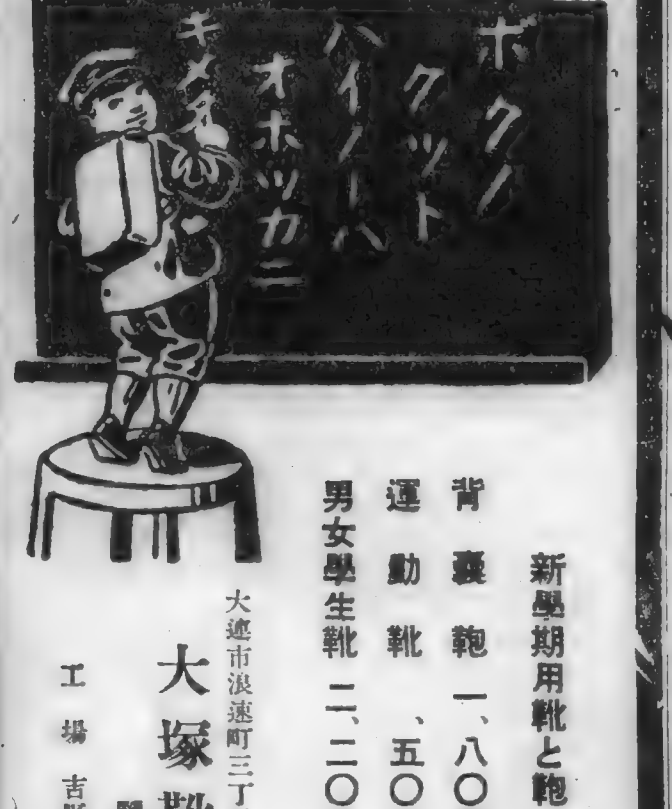 ボクノ
クツト
ハイノーハ
オホツカニ
キメタ
新學期用靴と鞄
背囊鞄 一、八〇
運動靴 、五〇
男女學生靴 二、二〇
大連市浪速町三丁
大塚靴
工場 吉野